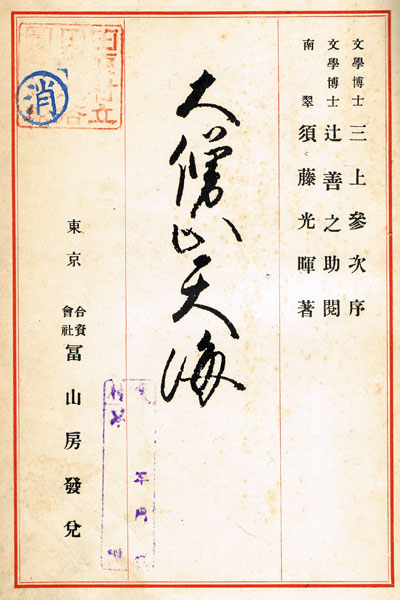 文學博士 三上參次序
文學博士 辻善之助閲
南翠 須藤光暉著
大僧正天海
東京 合資會社 冨山房發兌
消